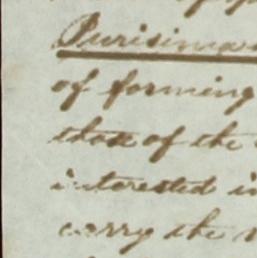 Purisima
of forming
those of the
interested in
carry the